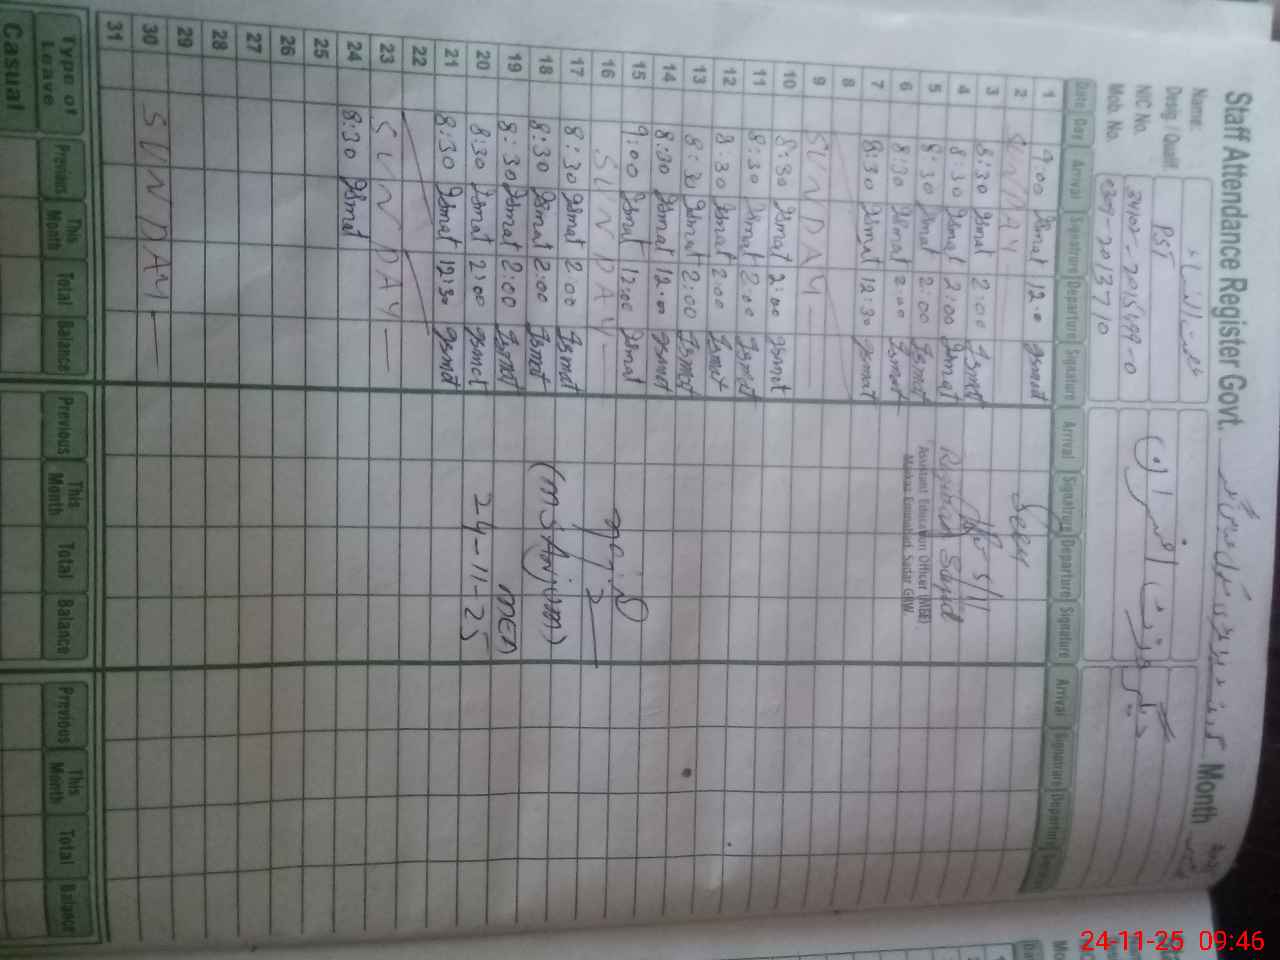 Staff Attendance Register Govt. Month
Name:
Desig. / Qualif. PST
NIC No. 34101-2015499-0
Mob. No. 0309-2013710
Date Day Arrival Signature Departure Signature Arrival Signature Departure Signature Arrival Signature Departure Signature
1 9:00 Ismat 12:0 Ismat
2 SUNDAY Seen
3 8:30 Ismat 2:00 Ismat
4 8:30 Ismat 2:00 Ismat
5 8:30 Ismat 2:00 Ismat
Assistant Education Officer (MEE)
6 8:30 Ismat 2:00 Ismat
7 8:30 Ismat 12:30 Ismat
8
9 SUNDAY
10 8:30 Ismat 2:00 Ismat
11 8:30 Ismat 2:00 Ismat
12 8:30 Ismat 2:00 Ismat
13 8:30 Ismat 2:00 Ismat
14 8:30 Ismat 12:00 Ismat
15 9:00 Ismat 12:00 Ismat
16 SUNDAY
17 8:30 Ismat 2:00 Ismat
18 8:30 Ismat 2:00 Ismat (MS Anjum)
19 8:30 Ismat 2:00 Ismat MEA
20 8:30 Ismat 2:00 Ismat 24-11-25
21 8:30 Ismat 12:30 Ismat
22
23 SUNDAY
24 8:30 Ismat
25
26
27
28
29
30 SUNDAY
31
Type of Leave Previous This Month Total Balance Previous This Month Total Balance Previous This Month Total Balance
Casual
24-11-25 09:46